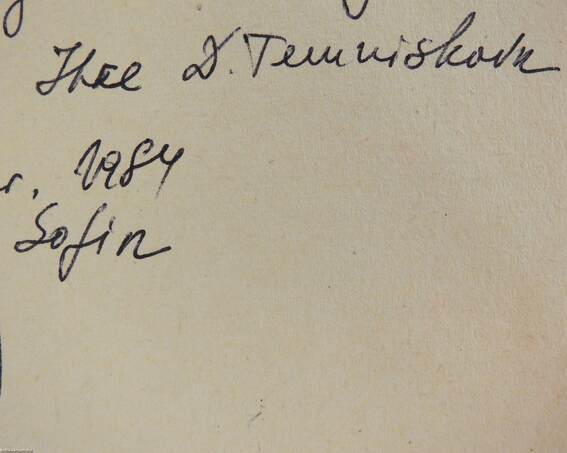 Ihre D. Temniskova
r, 1984
Sofia